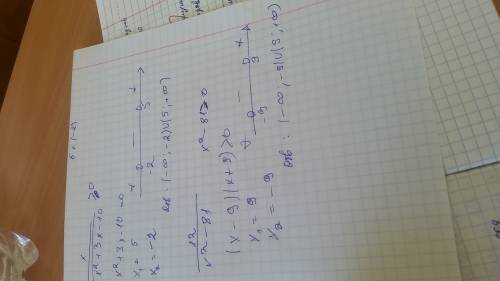 x
√x²+3x-10 ≥0
x²+3x-10=0
x₁=5
x₂=-2
+ — +
-2 5
Отв: (-∞;-2)U(5;+∞)
12
√x²-81 x²-81≥0
(x-9)(x+9)≥0
x₁=9
x₂=-9
+ — +
-9 9
Отв: (-∞,-9)U(9;+∞)